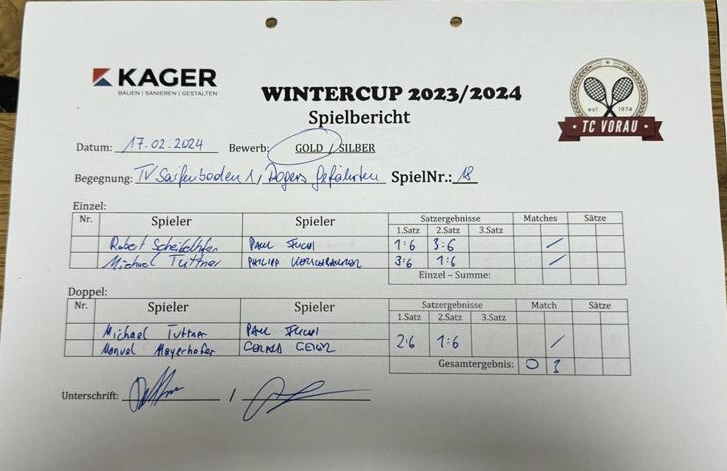 KAGER
BAUEN | SANIEREN | GESTALTEN
WINTERCUP 2023/2024
Spielbericht
est 1974
TC VORAU
Datum: 17.02.2024 Bewerb: GOLD / SILBER
Begegnung: TV Saifenboden 1 / Rogers Gefährten SpielNr.: 18
Einzel:
Nr. Spieler Spieler Satzergebnisse Matches Sätze
1.Satz 2.Satz 3.Satz
Robert Scheibelhofer PAUL 1:6 3:6 /
Michael Tuttner PHILIPP 3:6 1:6 /
Einzel – Summe:
Doppel:
Nr. Spieler Spieler Satzergebnisse Match Sätze
1.Satz 2.Satz 3.Satz
Michael Tuttner PAUL
Manuel Mayerhofer GERALD 2:6 1:6 /
Gesamtergebnis: 0
Unterschrift: /